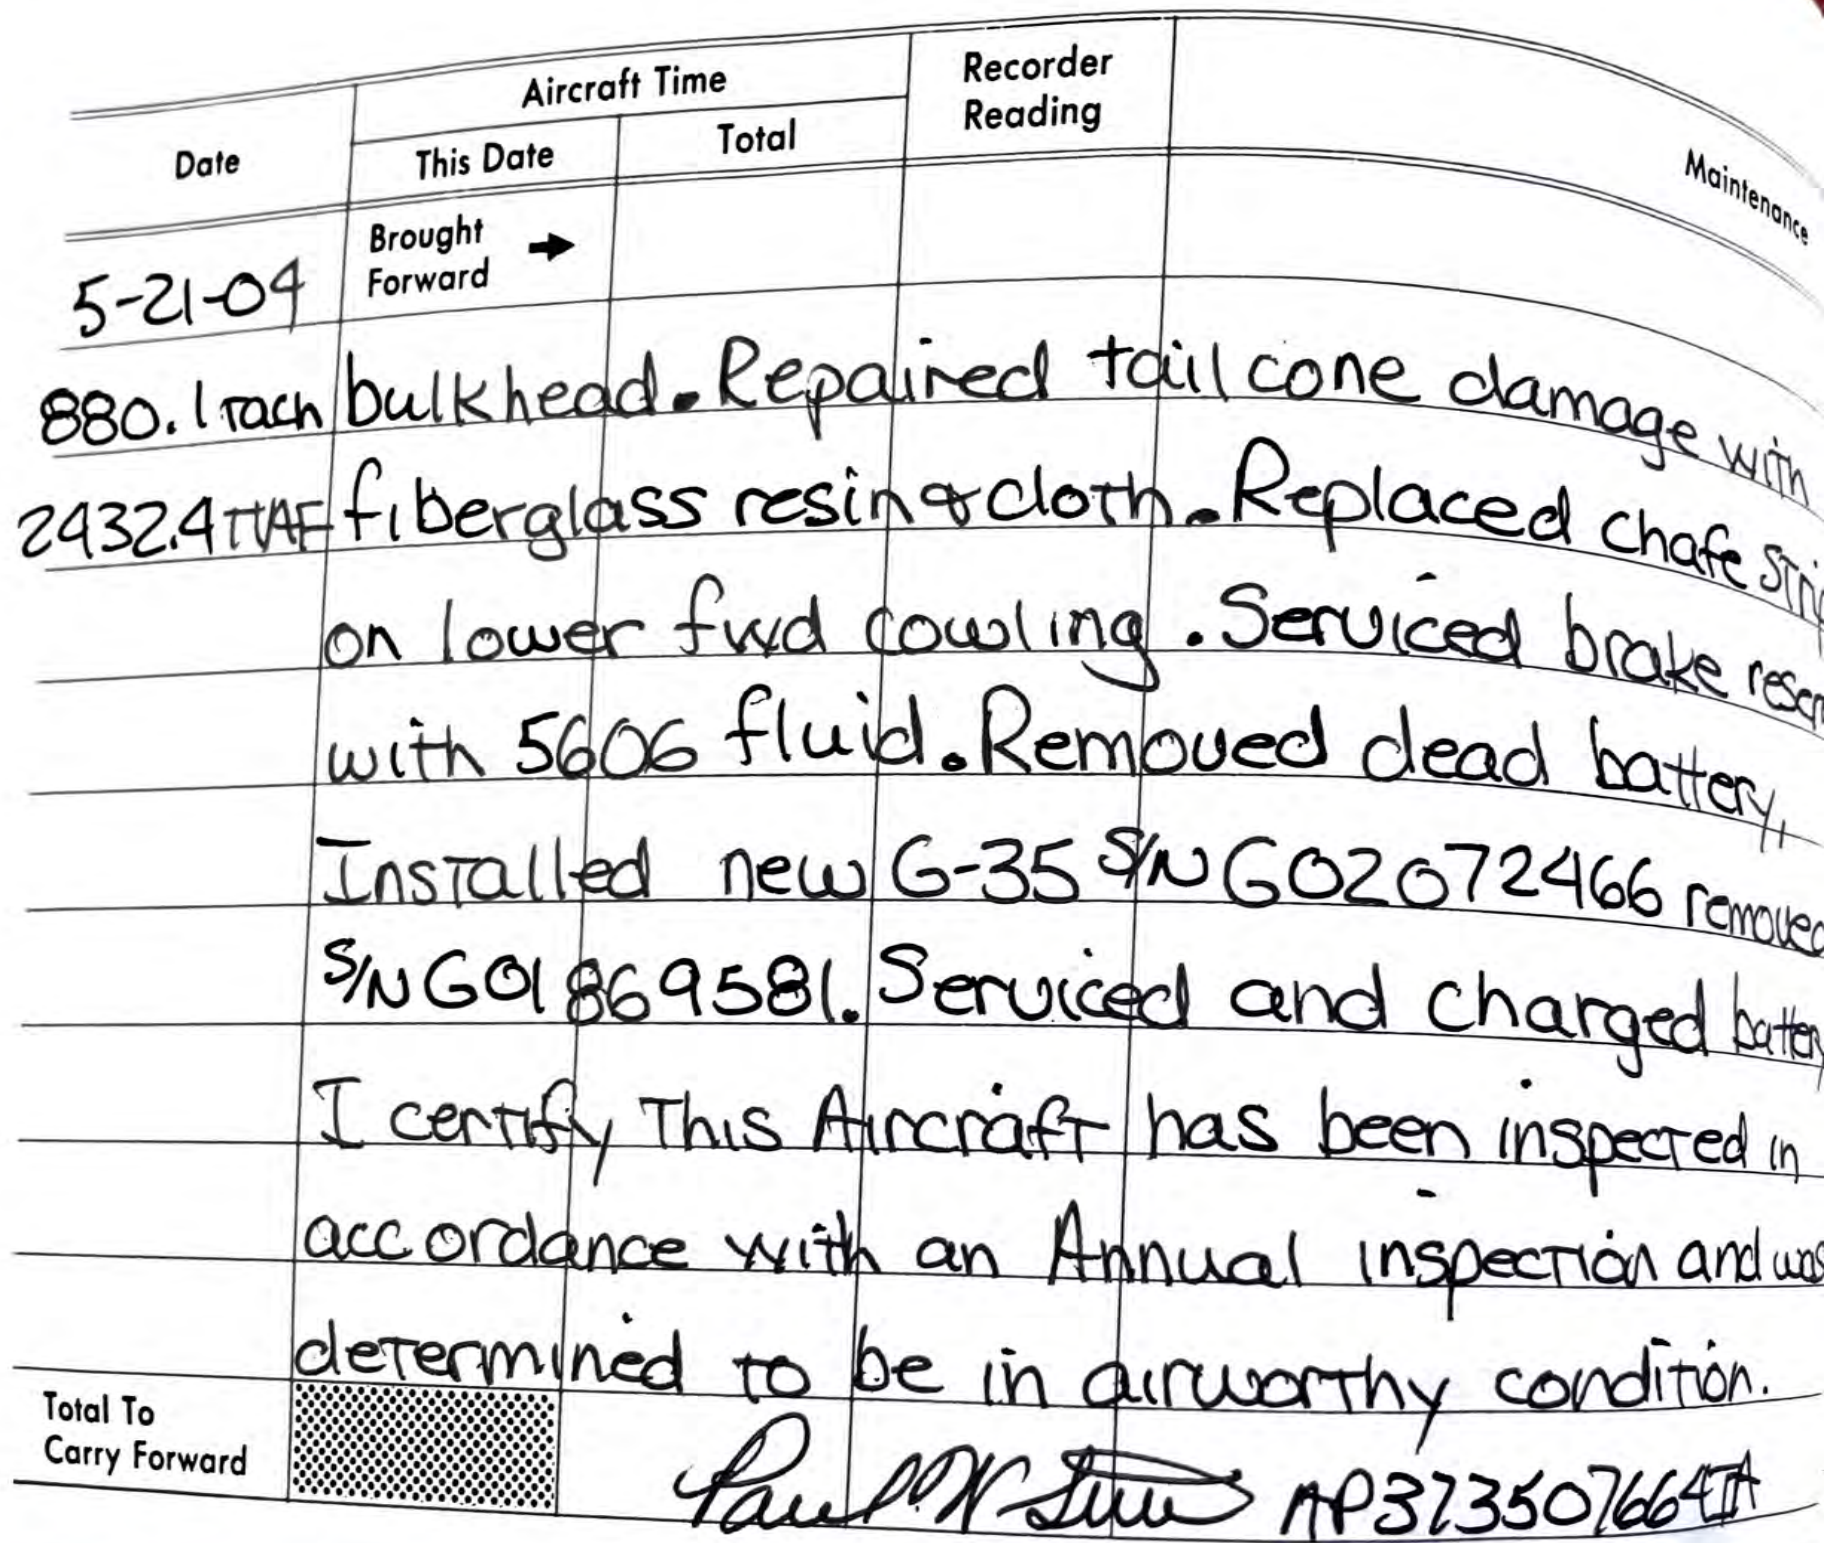 Date
Aircraft Time
Recorder
Reading
This Date
Total
Maintenance
Brought
Forward
5-21-04
880.1 tach bulkhead. Repaired tail cone damage with
2432.4 TTAF fiberglass resin & cloth. Replaced chafe
on lower fwd cowling. Serviced brake
with 5606 fluid. Removed dead battery,
Installed new G-35 S/N G02072466 removed
S/N G01869581. Serviced and charged battery
I certify This Aircraft has been inspected in
accordance with an Annual inspection and was
determined to be in airworthy condition.
Total To
Carry Forward
Paul W. AP373507664IA